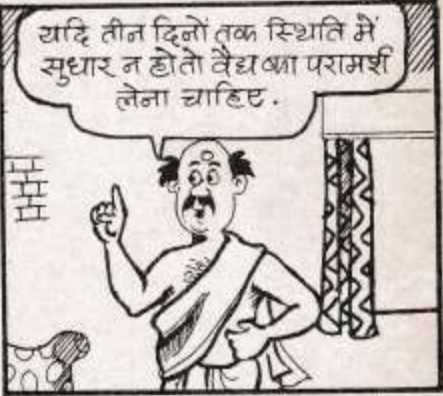 यदि तीन दिनों तक स्थिति में
सुधार न हो तो वैद्य का परामर्श
लेना चाहिए.